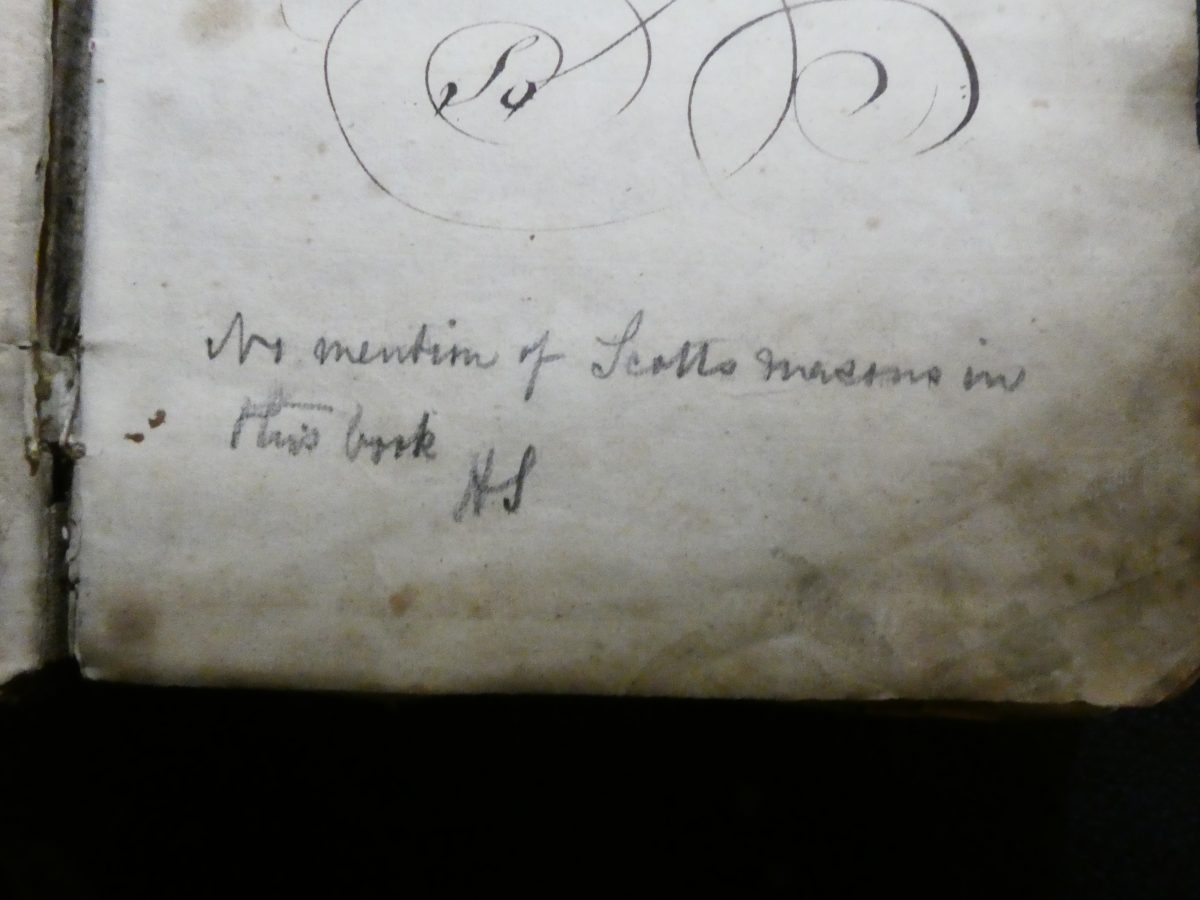 So
No mention of Scotts masons in
this book
HS